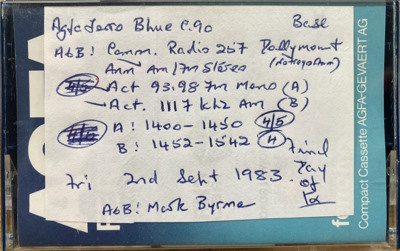 Agfa Ferro Blue C.90 Base
A&B! Comm. Radio 257 Ballymount
Ann AM/FM Stereo (Not Always Ann)
Act 93.98 FM Mono (A)
Act. 1117 khz AM (B)
A: 1400-1450 4/5
B: 1452-1542 4 Final
Fri 2nd Sept 1983. Day
of
A&B! Mark Byrne
AGFA
Compact Cassette AGFA-GEVAERT AG